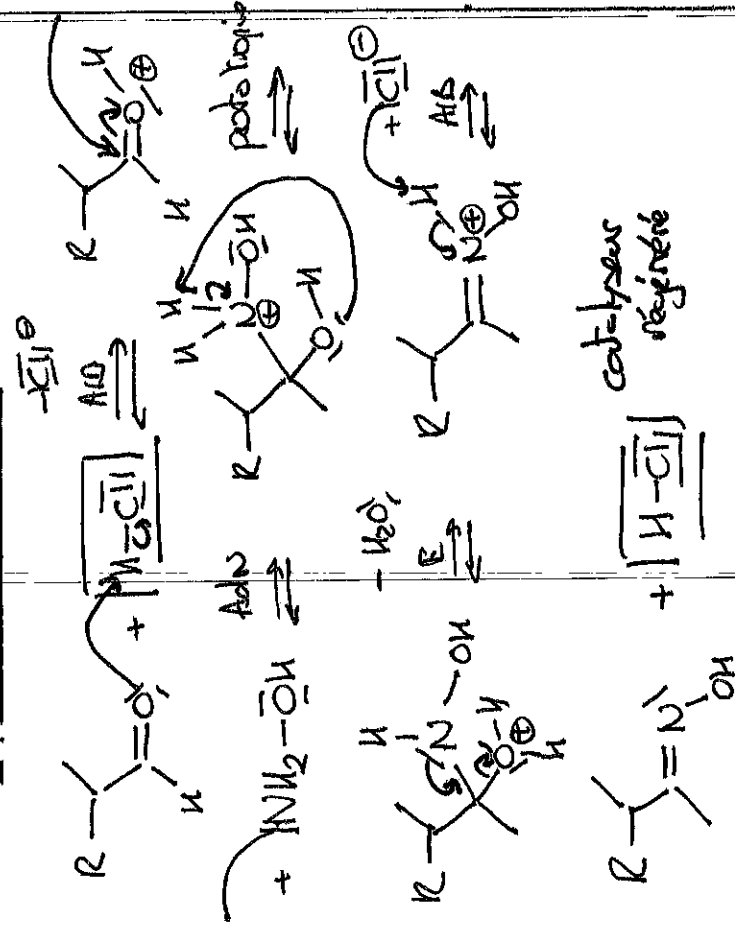 R H O + H–Cl –Cl⊖ A/B R H O⊕ H
+ NH2–OH AdN R H H N⊕ OH O H prototropie
R H N OH O⊕ H H –H2O E R H N⊕ OH + Cl⊖ A/B
R N OH + H–Cl catalyseur
régénéré